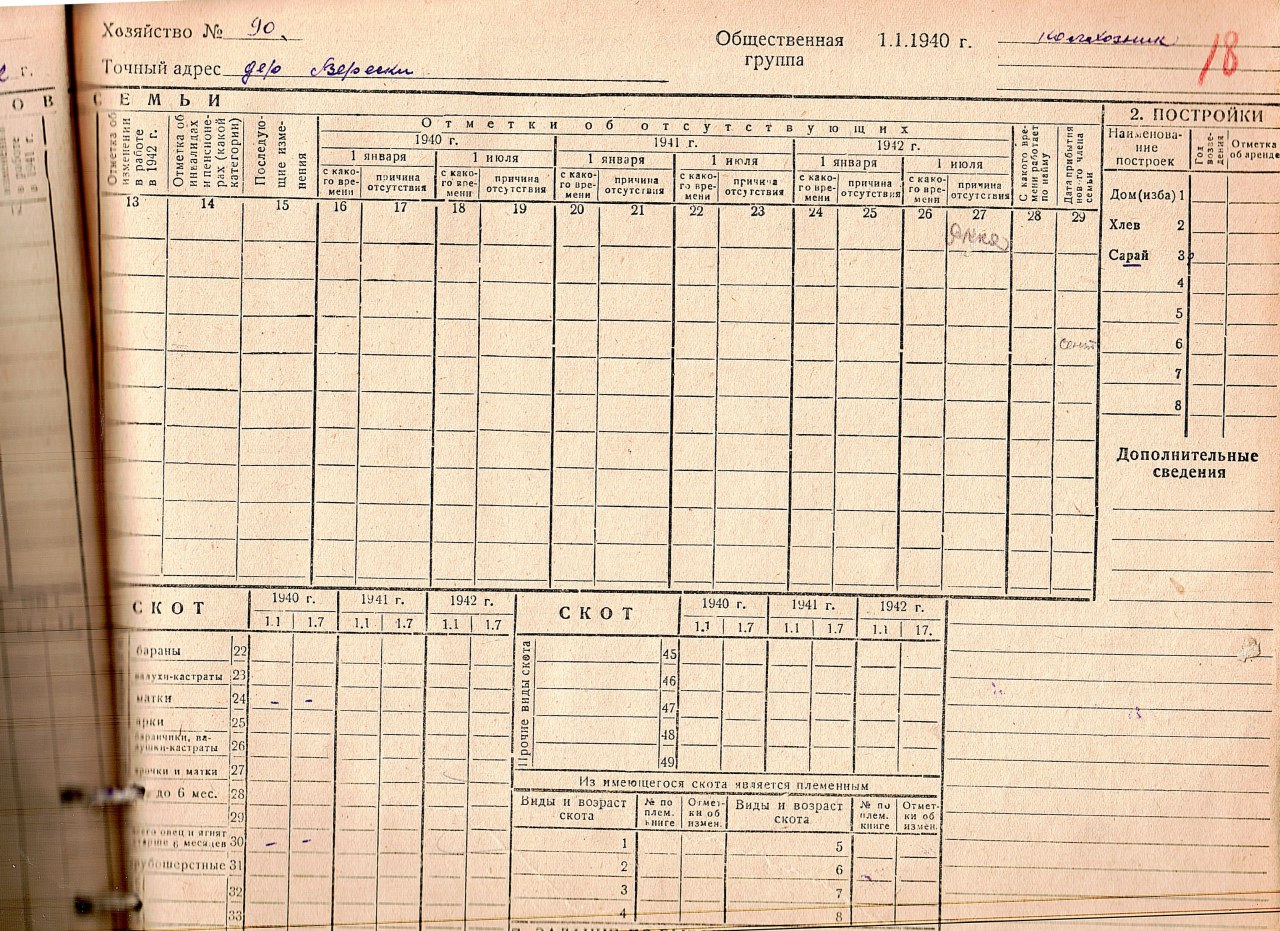 Хозяйство № 90.
Общественная группа 1.1.1940 г. колхозник
18
Точный адрес дер Верески
г.
О В
СЕМЬИ
2. ПОСТРОЙКИ
Отметка об изменении в работе в 1942 г.
Отметка об инвалидах и пенсионерах (какой категории)
Последующие изменения
Отметки об отсутствующих
С какого времени работает по найму
Дата прибытия нов-го члена семьи
Наименование построек
Год возведения
Отметка об аренде
1940 г. 1941 г. 1942 г.
1 января 1 июля 1 января 1 июля 1 января 1 июля
с како-го вре-мени причина отсутствия с како-го вре-мени причина отсутствия с како-го вре-мени причина отсутствия с како-го вре-мени причина отсутствия с како-го вре-мени причина отсутствия с како-го вре-мени причина отсутствия
13 14 15 16 17 18 19 20 21 22 23 24 25 26 27 28 29
Дом (изба) 1
Хлев 2
Сарай 3
4
5
6
сент
7
8
Дополнительные сведения
СКОТ 1940 г. 1941 г. 1942 г.
1.1 1.7 1.1 1.7 1.1 1.7
бараны 22
валухи-кастраты 23
матки 24 - -
ярки 25
баранчики, ва-лушки-кастраты 26
ярочки и матки 27
до 6 мес. 28
29
овец и ягнят старше 6 месяцев 30 - -
грубошерстные 31
32
33
СКОТ 1940 г. 1941 г. 1942 г.
1.1 1.7 1.1 1.7 1.1 17.
Прочие виды скота
45
46
47
48
49
Из имеющегося скота является племенным
Виды и возраст скота № по плем. книге Отмет-ки об измен. Виды и возраст скота № по плем. книге Отмет-ки об измен.
1 5
2 6
3 7
4 8